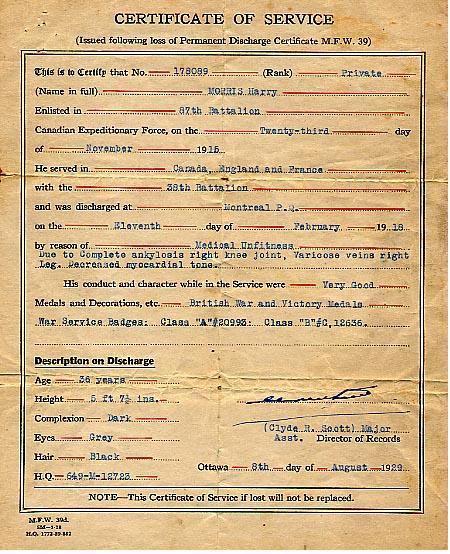 CERTIFICATE OF SERVICE
(Issued following loss of Permanent Discharge Certificate M.F.W. 39)
This is to Certify that No. 178089 (Rank) Private
(Name in full) MORRIS Harry
Enlisted in 87th Battalion
Canadian Expeditionary Force, on the Twenty-third day
of November 1915
He served in Canada, England and France
with the 38th Battalion
and was discharged at Montreal P.Q.
on the Eleventh day of February 1918
by reason of Medical Unfitness
Due to Complete ankylosis right knee joint, Varicose veins right
Leg. Decreased myocardial tone.
His conduct and character while in the Service were Very Good
Medals and Decorations, etc. British War and Victory Medals
War Service Badges: Class "A"#20993: Class "B"#C,12636.
Description on Discharge
Age 36 years
Height 5 ft 7½ ins.
Complexion Dark
Eyes Grey
Hair Black
H.Q. 649-M-12723
(Clyde R. Scott) Major
Asst. Director of Records
Ottawa 8th day of August 1929
NOTE—This Certificate of Service if lost will not be replaced.
M.F.W. 39d.
H.Q. 1772-39-882